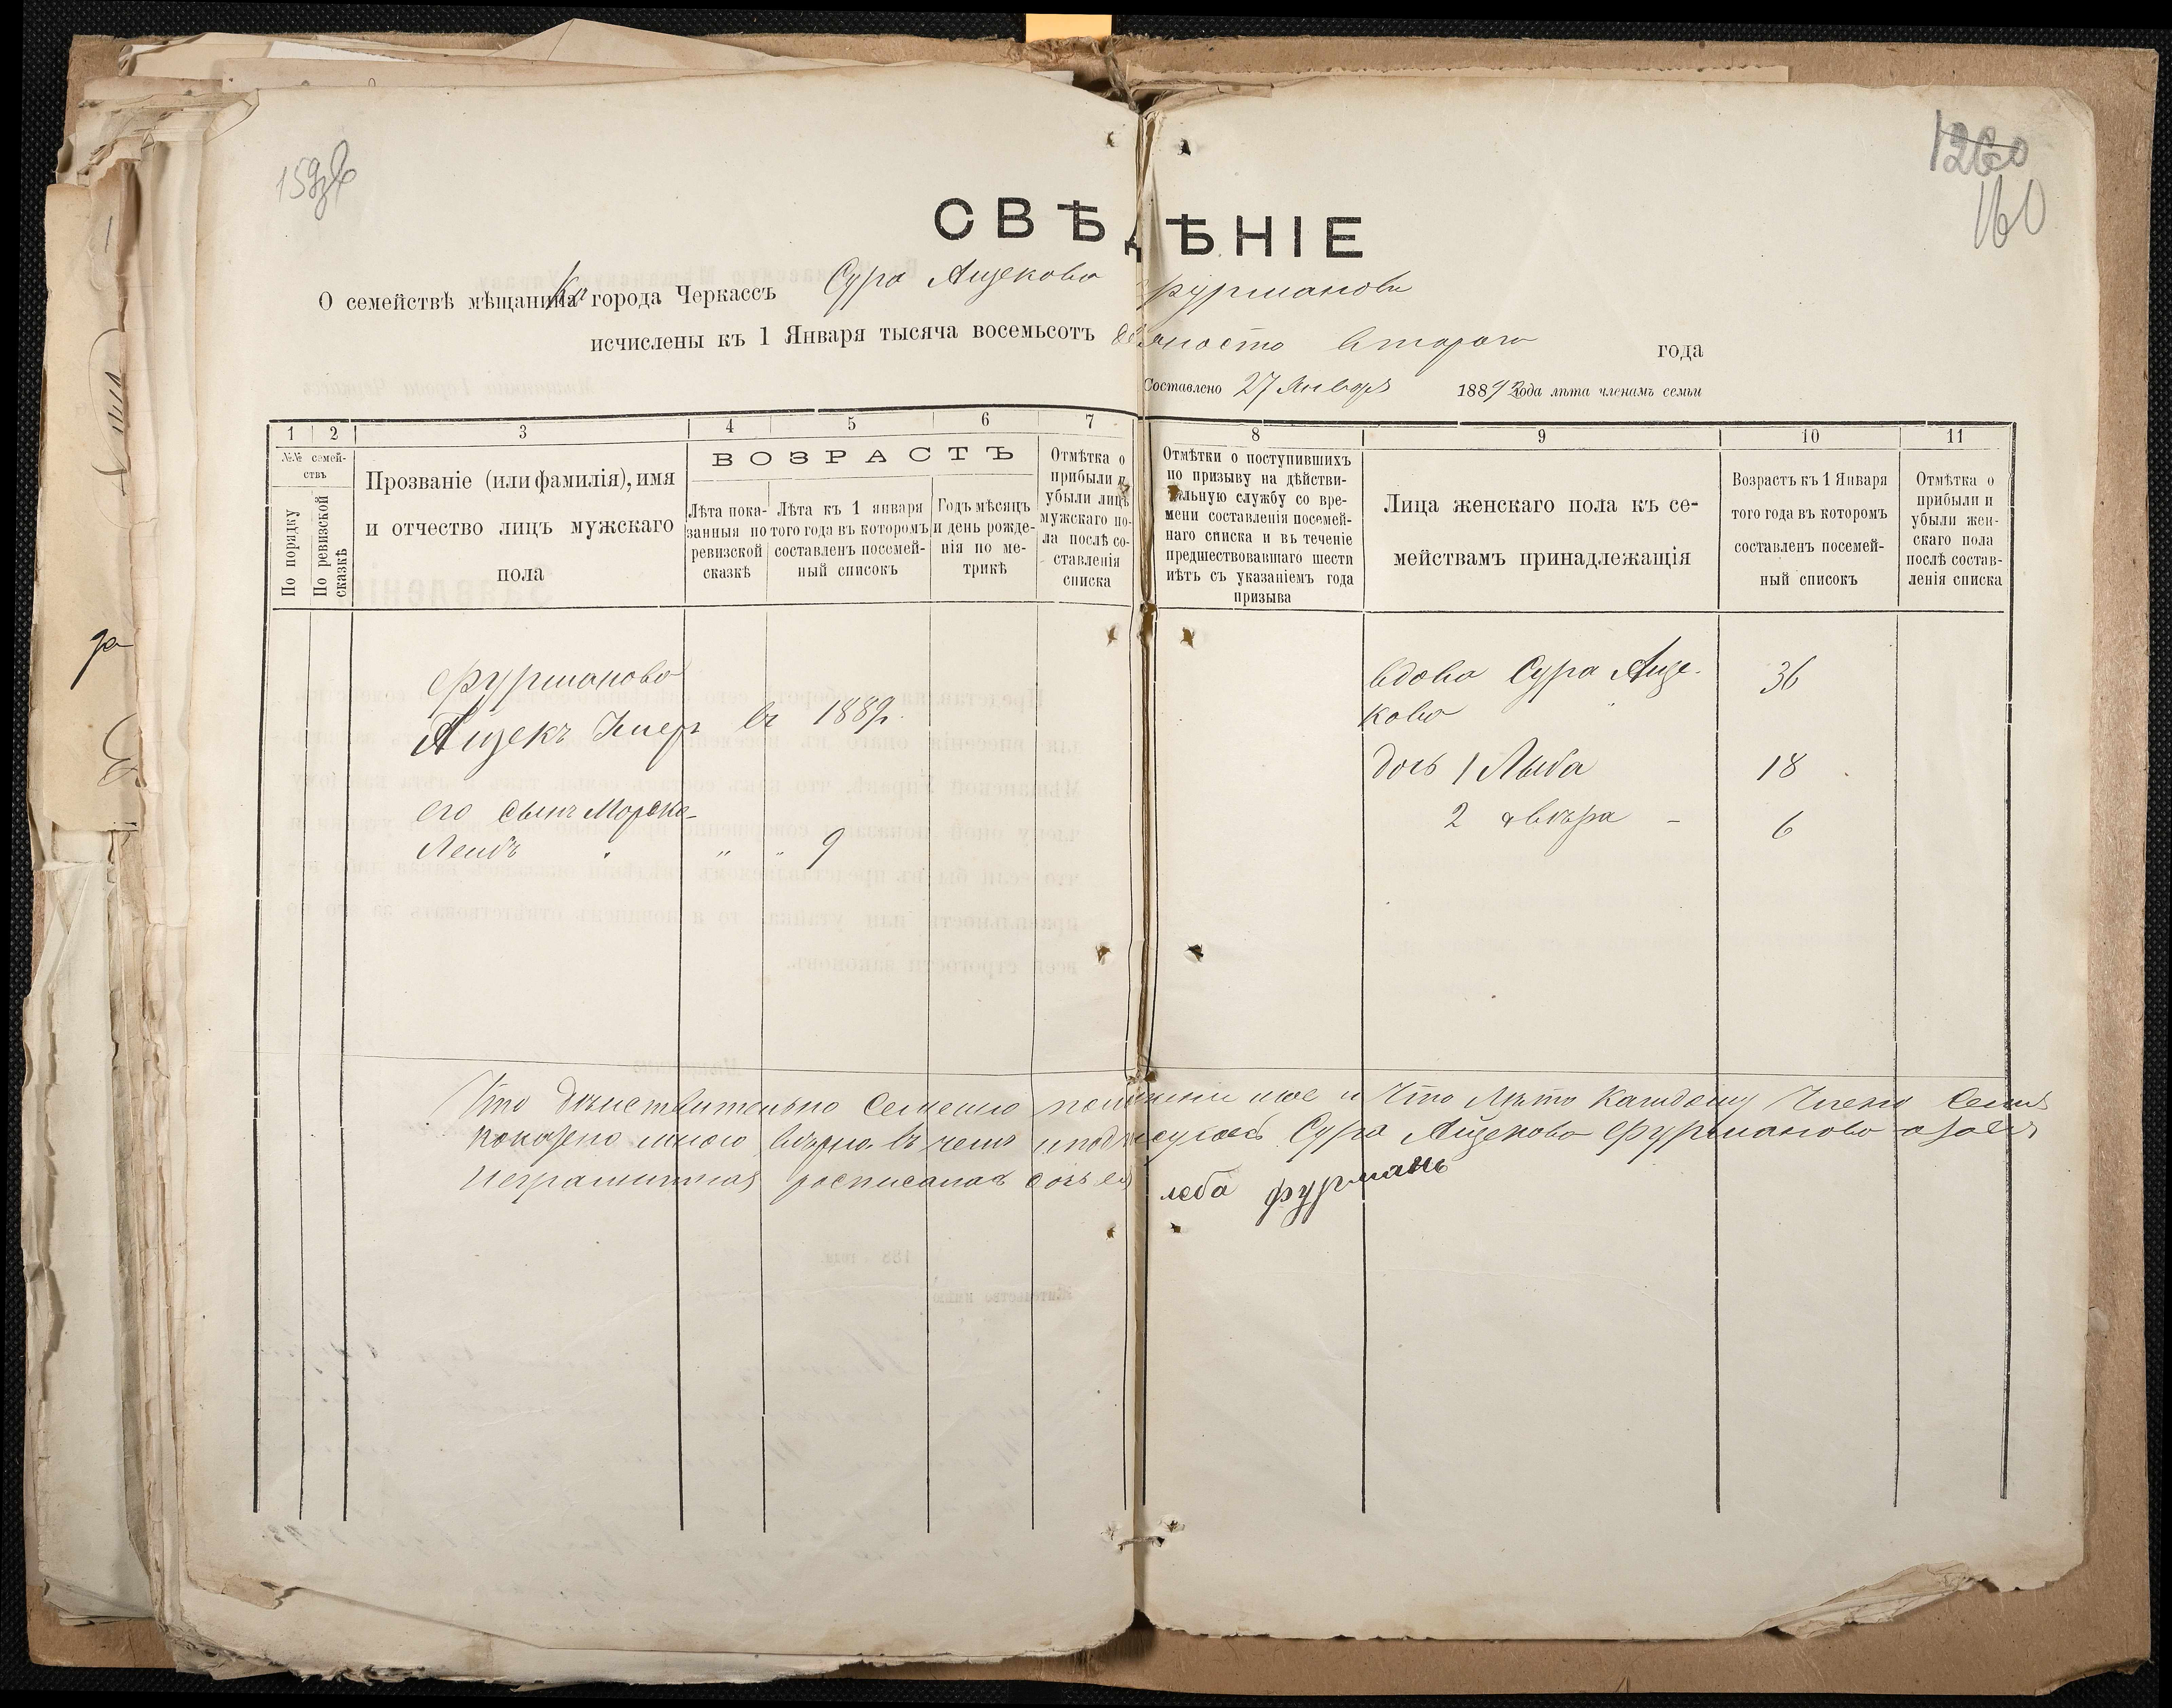 159об
1260
160
СВѢДѢНІЕ
О семействѣ мѣщанина ки города Черкассъ Сура Ицекова Фурманова
исчислены къ 1 Января тысяча восемьсотъ девяносто второго года
Составлено 27 Январъ 1892 года лѣта членамъ семьи
1 2 3 4 5 6 7 8 9 10 11
№№ семей-
ствъ
По порядку
По ревизской
сказкѣ
Прозваніе (или фамилія), имя
и отчество лицъ мужскаго
пола
ВОЗРАСТЪ
Лѣта пока-
занныя по
ревизской
сказкѣ
Лѣта къ 1 января
того года въ которомъ
составленъ посемей-
ный списокъ
Годъ мѣсяцъ
и день рожде-
нія по ме-
трикѣ
Отмѣтка о
прибыли и
убыли лицъ
мужскаго по-
ла послѣ со-
ставленія
списка
Отмѣтки о поступившихъ
по призыву на дѣйстви-
тельную службу со вре-
мени составленія посемей-
наго списка и въ теченіе
предшествовавшаго шести
лѣтъ съ указаніемъ года
призыва
Лица женскаго пола къ се-
мействамъ принадлежащія
Возрастъ къ 1 Января
того года въ которомъ
составленъ посемей-
ный списокъ
Отмѣтка о
прибыли и
убыли жен-
скаго пола
послѣ состав-
ленія списка
Фурманова
Ицекъ Умеръ въ 1889г.
его сынъ Мордко-
Лейбъ " " 9
вдова Сура Ице- 36
кова
дочь 1 Лыба 18
2 Двѣра - 6
Что действительно семейно мое и Что Лѣта Каждому Члена семъ
показано мною вѣрно въ чемъ и подписуюсь Сура Ицекова Фурманова а за ея
неграмотная росписалась
леба фурманъ